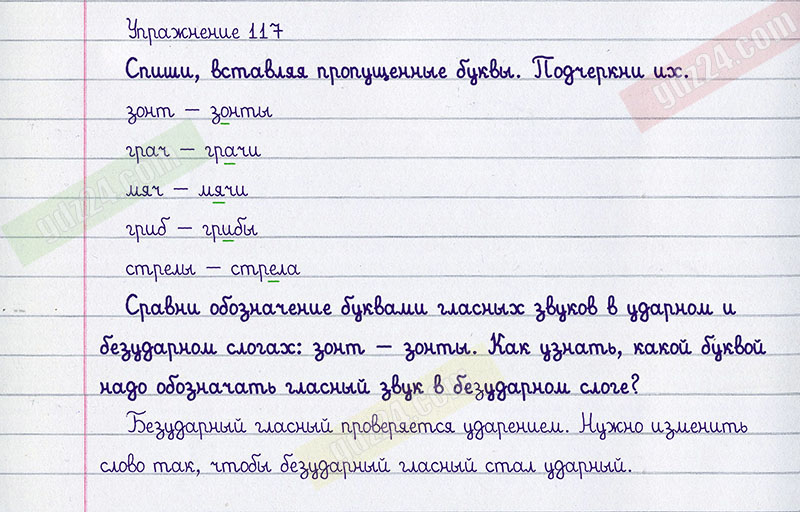 Упражнение 117
Спиши, вставляя пропущенные буквы. Подчеркни их.
зонт – зонты
грач – грачи
мяч – мячи
гриб – грибы
стрелы – стрела
Сравни обозначение буквами гласных звуков в ударном и
безударном слогах: зонт – зонты. Как узнать, какой буквой
надо обозначать гласный звук в безударном слоге?
Безударный гласный проверяется ударением. Нужно изменить
слово так, чтобы безударный гласный стал ударный.
gdz24.com
gdz24.com
gdz24.com